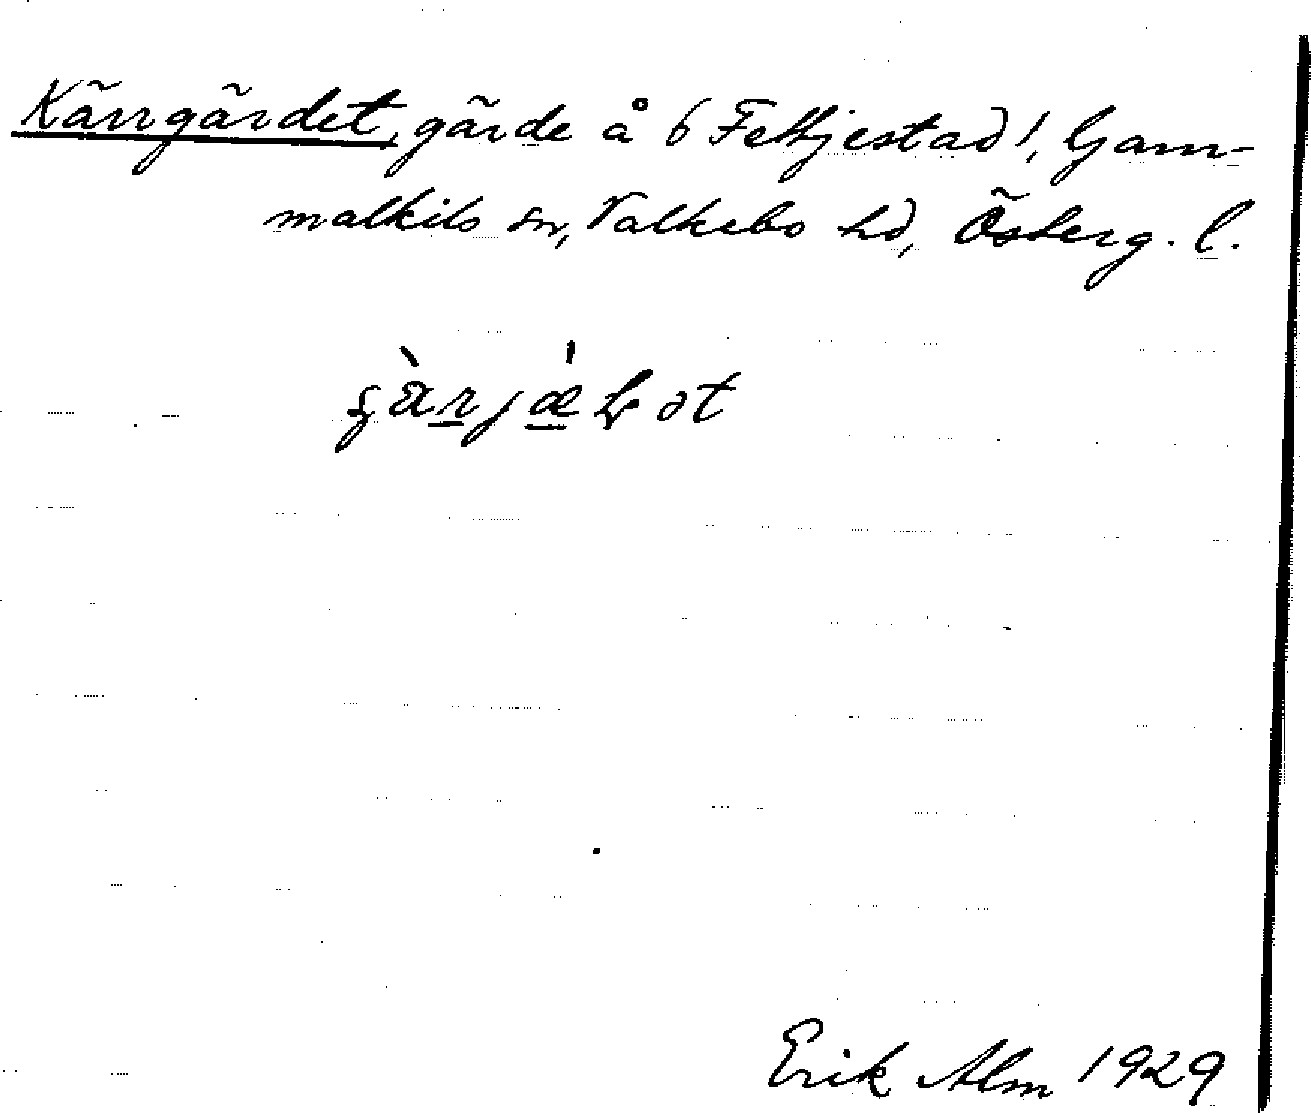 Kärrgärdet, gärde å 6 Fettjestad!, Gam-
malkils sn, Valkebo hd, Österg. l.
Erik Alm 1929